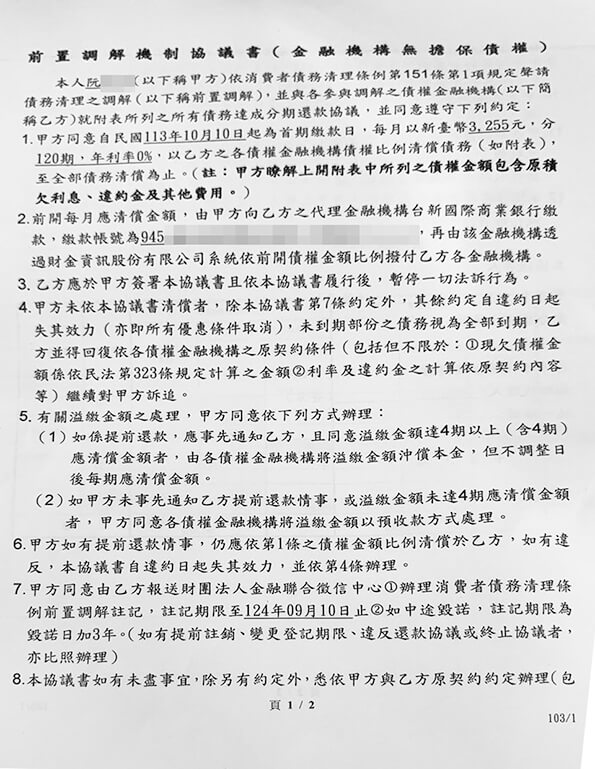 前置調解機制協議書(金融機構無擔保債權)
本人阮 (以下稱甲方)依消費者債務清理條例第151條第1項規定聲請
債務清理之調解(以下稱前置調解),並與各參與調解之債權金融機構(以下簡
稱乙方)就附表所列之所有債務達成分期還款協議,並同意遵守下列約定:
1.甲方同意自民國113年10月10日起為首期繳款日,每月以新臺幣3,255元,分
120期,年利率0%,以乙方之各債權金融機構債權比例清償債務(如附表),
至全部債務清償為止。(註:甲方瞭解上開附表中所列之債權金額包含原積
欠利息、違約金及其他費用。)
2.前開每月應清償金額,由甲方向乙方之代理金融機構台新國際商業銀行繳
款,繳款帳號為945 ,再由該金融機構透
過財金資訊股份有限公司系統依前開債權金額比例撥付乙方各金融機構。
3.乙方應於甲方簽署本協議書且依本協議書履行後,暫停一切法訴行為。
4.甲方未依本協議書清償者,除本協議書第7條約定外,其餘約定自違約日起
失其效力(亦即所有優惠條件取消),未到期部份之債務視為全部到期,乙
方並得回復依各債權金融機構之原契約條件(包括但不限於:①現欠債權金
額係依民法第323條規定計算之金額②利率及違約金之計算依原契約內容
等)繼續對甲方訴追。
5.有關溢繳金額之處理,甲方同意依下列方式辦理:
(1)如係提前還款,應事先通知乙方,且同意溢繳金額達4期以上(含4期)
應清償金額者,由各債權金融機構將溢繳金額沖償本金,但不調整日
後每期應清償金額。
(2)如甲方未事先通知乙方提前還款情事,或溢繳金額未達4期應清償金額
者,甲方同意各債權金融機構將溢繳金額以預收款方式處理。
6.甲方如有提前還款情事,仍應依第1條之債權金額比例清償於乙方,如有違
反,本協議書自違約日起失其效力,並依第4條辦理。
7.甲方同意由乙方報送財團法人金融聯合徵信中心①辦理消費者債務清理條
例前置調解註記,註記期限至124年09月10日止②如中途毀諾,註記期限為
毀諾日加3年。(如有提前註銷、變更登記期限、違反還款協議或終止協議者,
亦比照辦理)
8.本協議書如有未盡事宜,除另有約定外,悉依甲方與乙方原契約約定辦理(包
頁 1 / 2
103/1